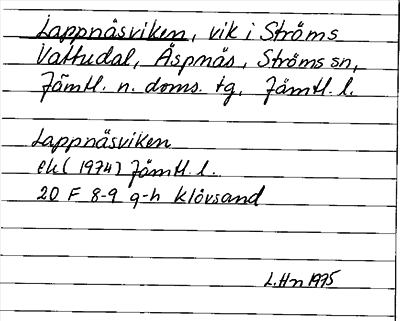 Lappnäsviken, vik i Ströms
Vattudal, Äspnäs, Ströms sn,
Jämtl. n. doms. tg, Jämtl. l.
Lappnäsviken
ek (1974) Jämtl. l.
20 F 8-9 g-h Klövsand
L.Hn 1975